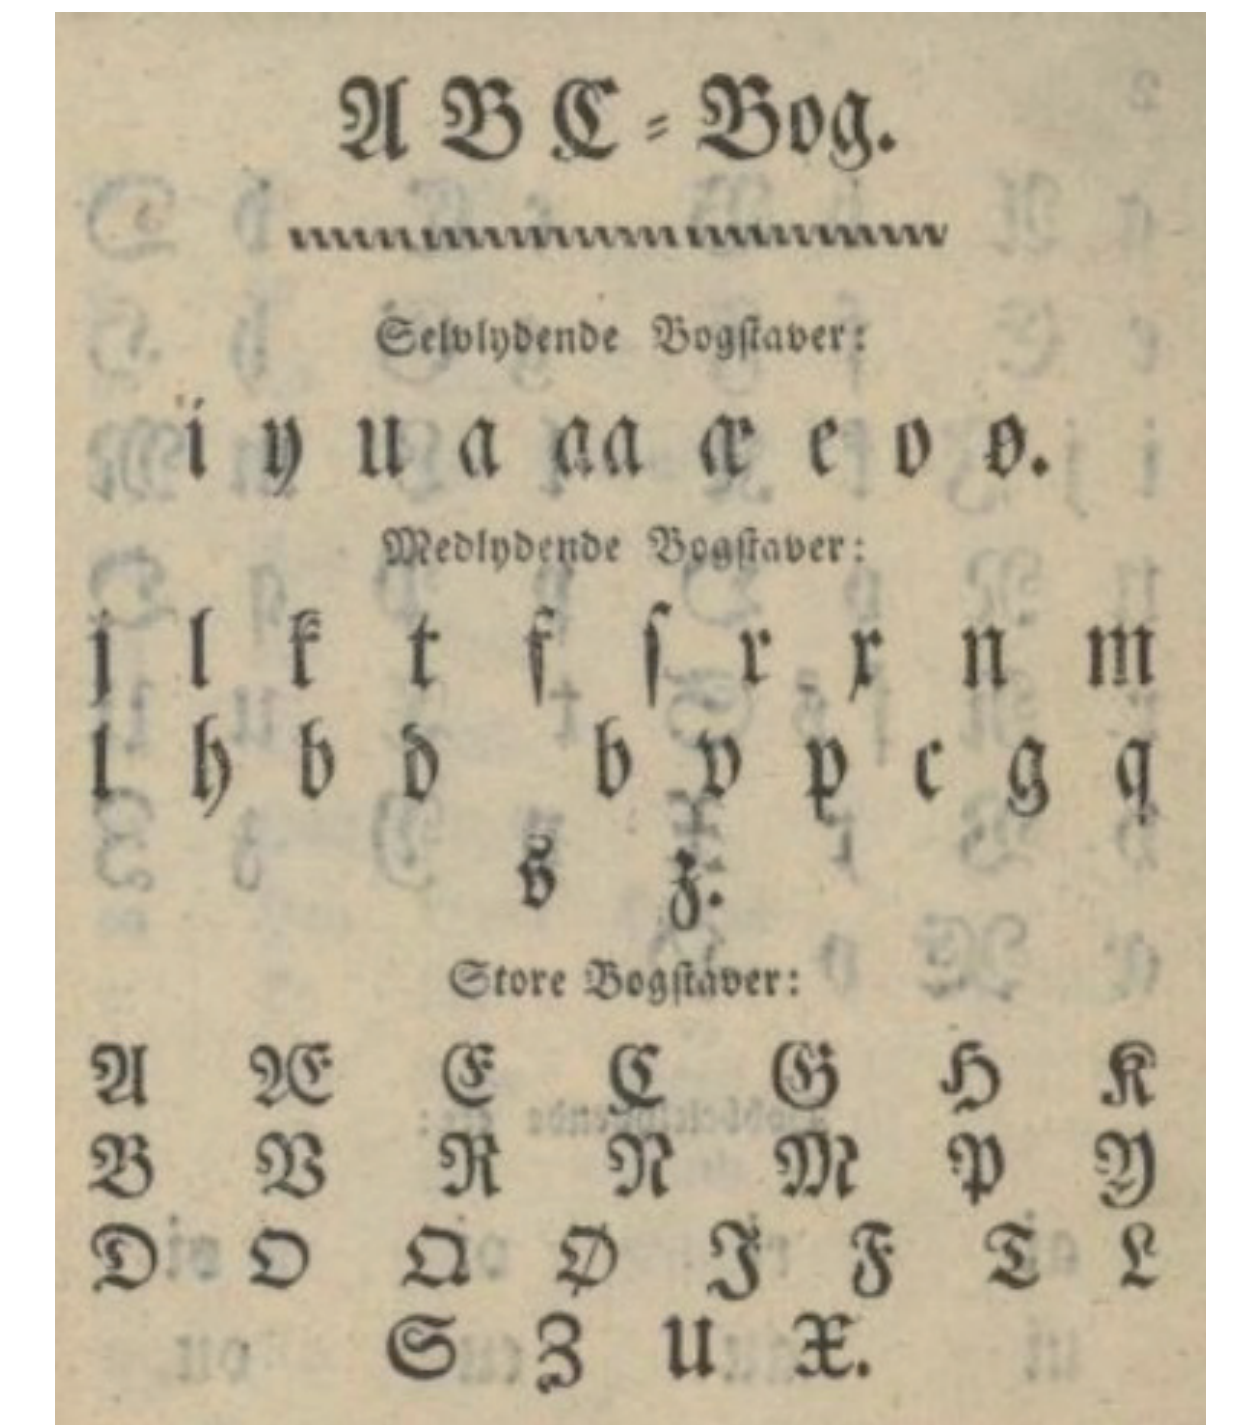 A B C - Bog.
Selvlydende Bogstaver:
i y u a aa æ e o ø.
Medlydende Bogstaver:
j l k t f ſ r x n m
l h b d b v p c g q
s z.
Store Bogstaver:
A Æ E C G H K
B V R N M P Y
D O Q Ø J F T L
S Z U X.